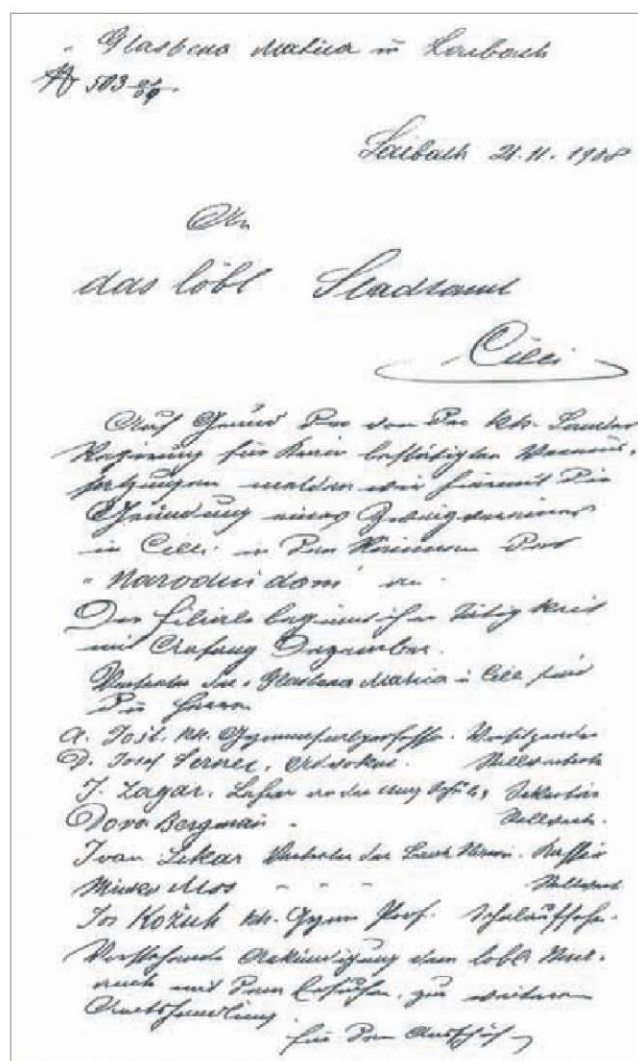 „Glasbena Matica in Laibach
№ 503
Laibach 21. 11. 1908
An
das löbl Stadtamt
Cilli
Auf Grund der von der kk. Landes
Regierung für Krain bestätigten
melden wir hiermit die
Gründung eines Zweigvereines
in Cilli in den Räumen des
„Narodni dom" an.
Die Filiale beginnt ihre Tätigkeit
mit Anfang Dezember.
Vertreter der „Glasbena Matica in Cilli sind
die Herren
A. Jošt. kk. Gymnasialprofessor. Vorsitzender
D. Josef Sernec, Advokat.
J. Zagar. Lehrer an der Schule, Sekretär
Dova Bergman
Ivan Likar der Kassier
Mos - - -
Jos Kožuh kk. Gymn Prof. Schulaufseher
Vorstehende Ankündigung dem löbl
mit dem Ersuchen, zur weiteren
Amtshandlung
für den Ausschuß